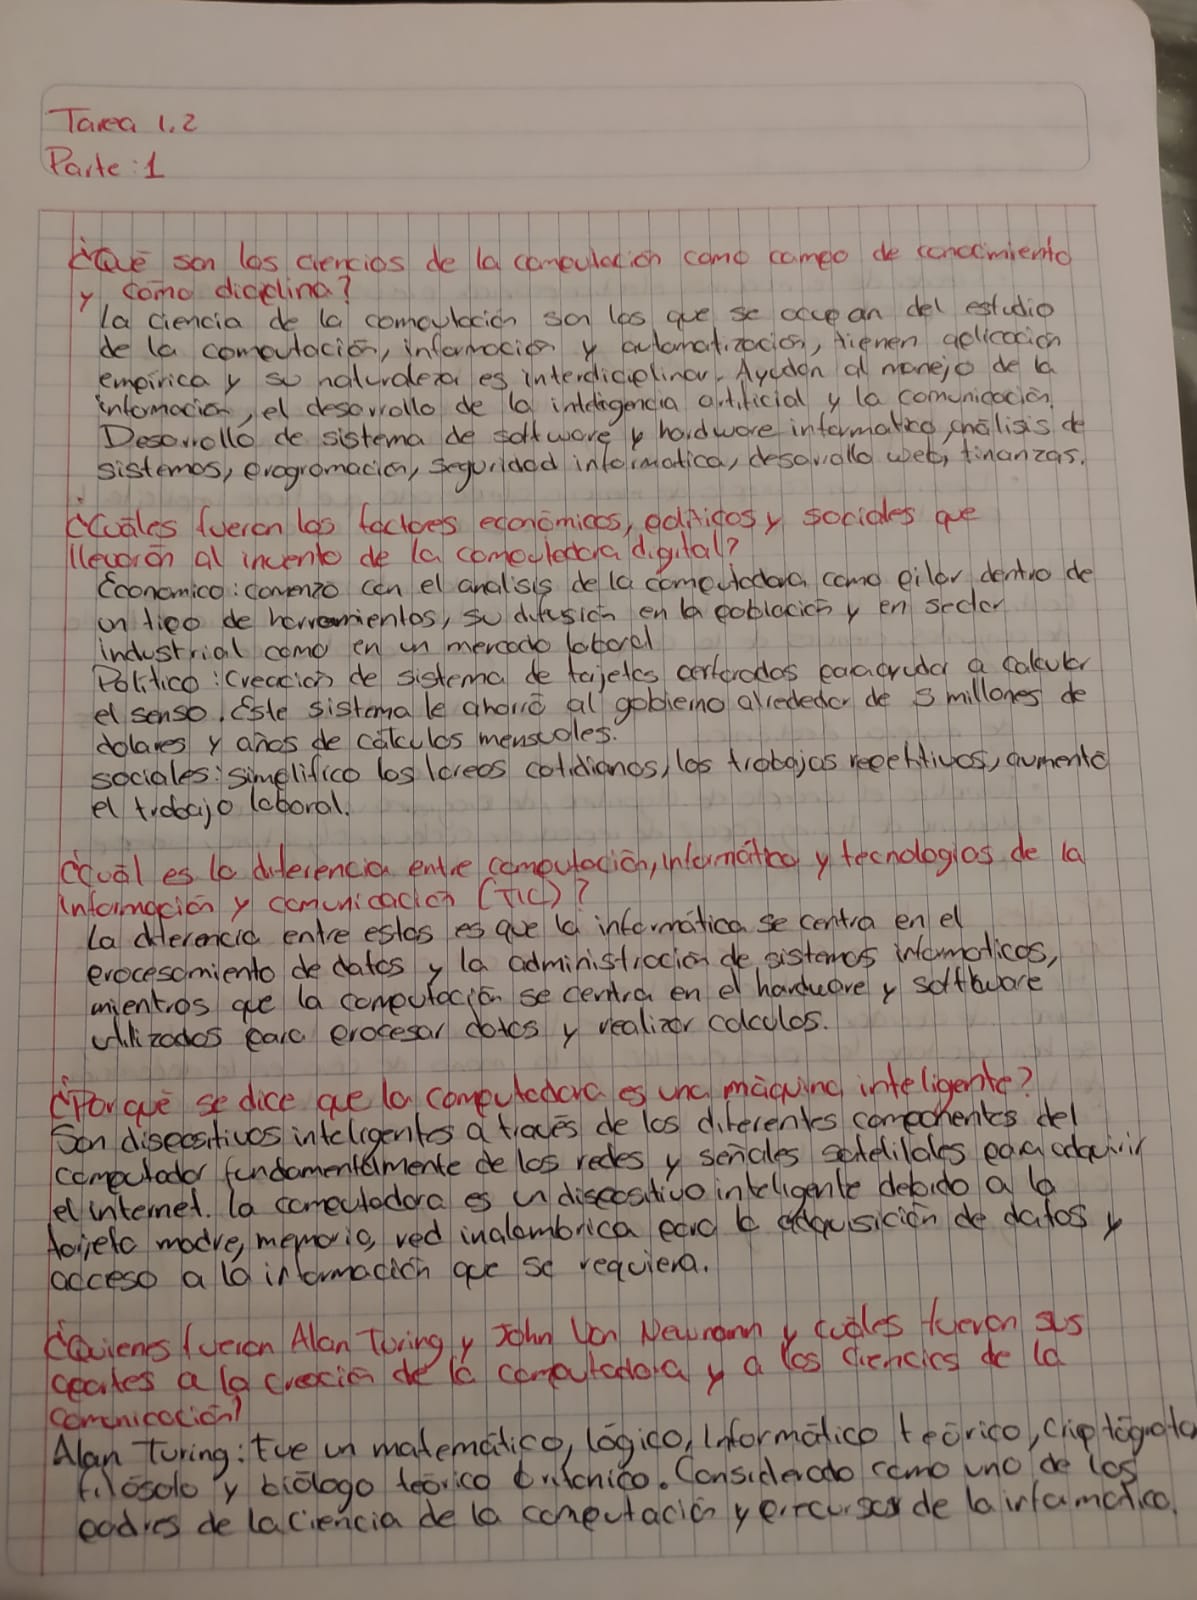 Tarea 1.2
Parte: 1
¿Qué son las ciencias de la computación como campo de conocimiento
y como diciplina?
La ciencia de la computación son las que se ocupan del estudio
de la computación, información y automatización, tienen aplicación
empírica y su naturaleza es interdiciplinar. Ayudan al manejo de la
información, el desarrollo de la inteligencia artificial y la comunicación.
Desarrollo de sistema de software y hardware informatico, análisis de
sistemas, programación, seguridad informatica, desarrollo web, finanzas.
¿Cuáles fueron los factores económicos, políticos y sociales que
llevarón al invento de la computadora digital?
Economico: comenzo con el analisis de la computadora como pilar dentro de
un tipo de herramientos, su difusión en la población y en sector
industrial como en un mercado laboral
Político: Creación de sistema de tarjetas perforadas para ayudar a calcular
el senso. Este sistema le ahorró al gobierno alrededor de 5 millones de
dolares y años de cálculos mensuales.
sociales: simplifico las tareas cotidianas, los trabajos repetitivos, aumento
el trabajo laboral.
¿Cuál es la diferencia entre computación, informática y tecnologías de la
información y comunicación (TIC)?
La diferencia entre estas es que la informática se centra en el
procesamiento de datos y la administración de sistemas informaticos,
mientras que la computación se centra en el hardware y software
utilizados para procesar datos y realizar calculos.
¿Por qué se dice que la computadora es una máquina inteligente?
Son dispositivos inteligentes a través de los diferentes componentes del
computador fundamentalmente de las redes y señales satelitales para adquirir
el internet. la computadora es un dispositivo inteligente debido a la
tarjeta madre, memoria, red inalambrica para la adquisición de datos y
acceso a la información que se requiera.
¿Quienes fueron Alan Turing y John Von Neumann y cuáles fueron sus
aportes a la creación de la computadora y a las ciencias de la
comunicación?
Alan Turing: Fue un matemático, lógico, informático teórico, criptógrafo
filósofo y biólogo teórico británico. Considerado como uno de los
padres de la ciencia de la computación y precursor de la informatica.